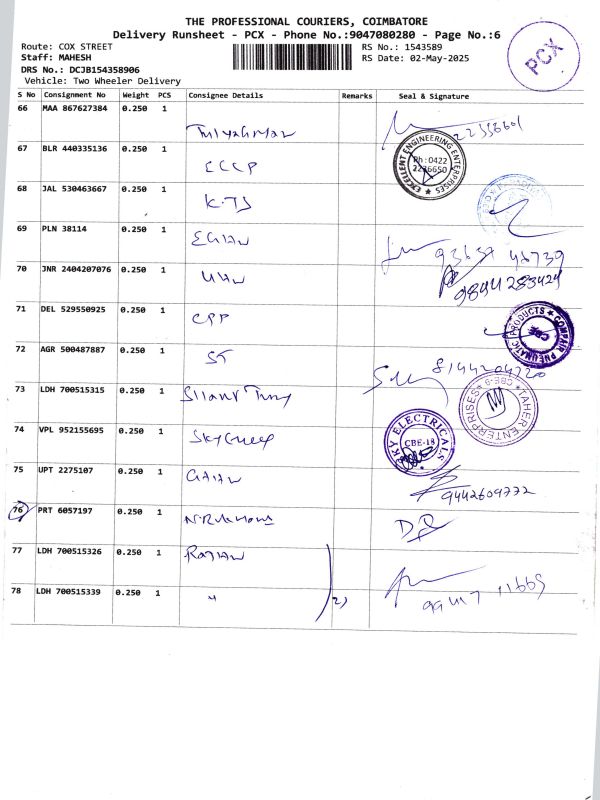 THE PROFESSIONAL COURIERS, COIMBATORE
Delivery Runsheet - PCX - Phone No.:9047080280 - Page No.:6
Route: COX STREET
RS No.: 1543589
PCX
Staff: MAHESH
RS Date: 02-May-2025
DRS No.: DCJB154358906
Vehicle: Two Wheeler Delivery
S No Consignment No Weight PCS Consignee Details Remarks Seal & Signature
66 MAA 867627384 0.250 1
67 BLR 440335136 0.250 1 ECCP
EXCELLENT ENGINEERING ENTERPRISES Ph : 0422 2236650
68 JAL 530463667 0.250 1 K.TS
69 PLN 38114 0.250 1
70 JNR 2404207076 0.250 1
9844 283424
71 DEL 529550925 0.250 1 CPP
COMPAIR PNEUMATIC PRODUCTS CBE
72 AGR 500487887 0.250 1 ST
8144204220
73 LDH 700515315 0.250 1
TAHER ENTERPRISES CBE-9
74 VPL 952155695 0.250 1
SKY ELECTRICALS CBE-18
75 UPT 2275107 0.250 1
9442609772
76 PRT 6057197 0.250 1
77 LDH 700515326 0.250 1 Rajan
78 LDH 700515339 0.250 1 " 2)